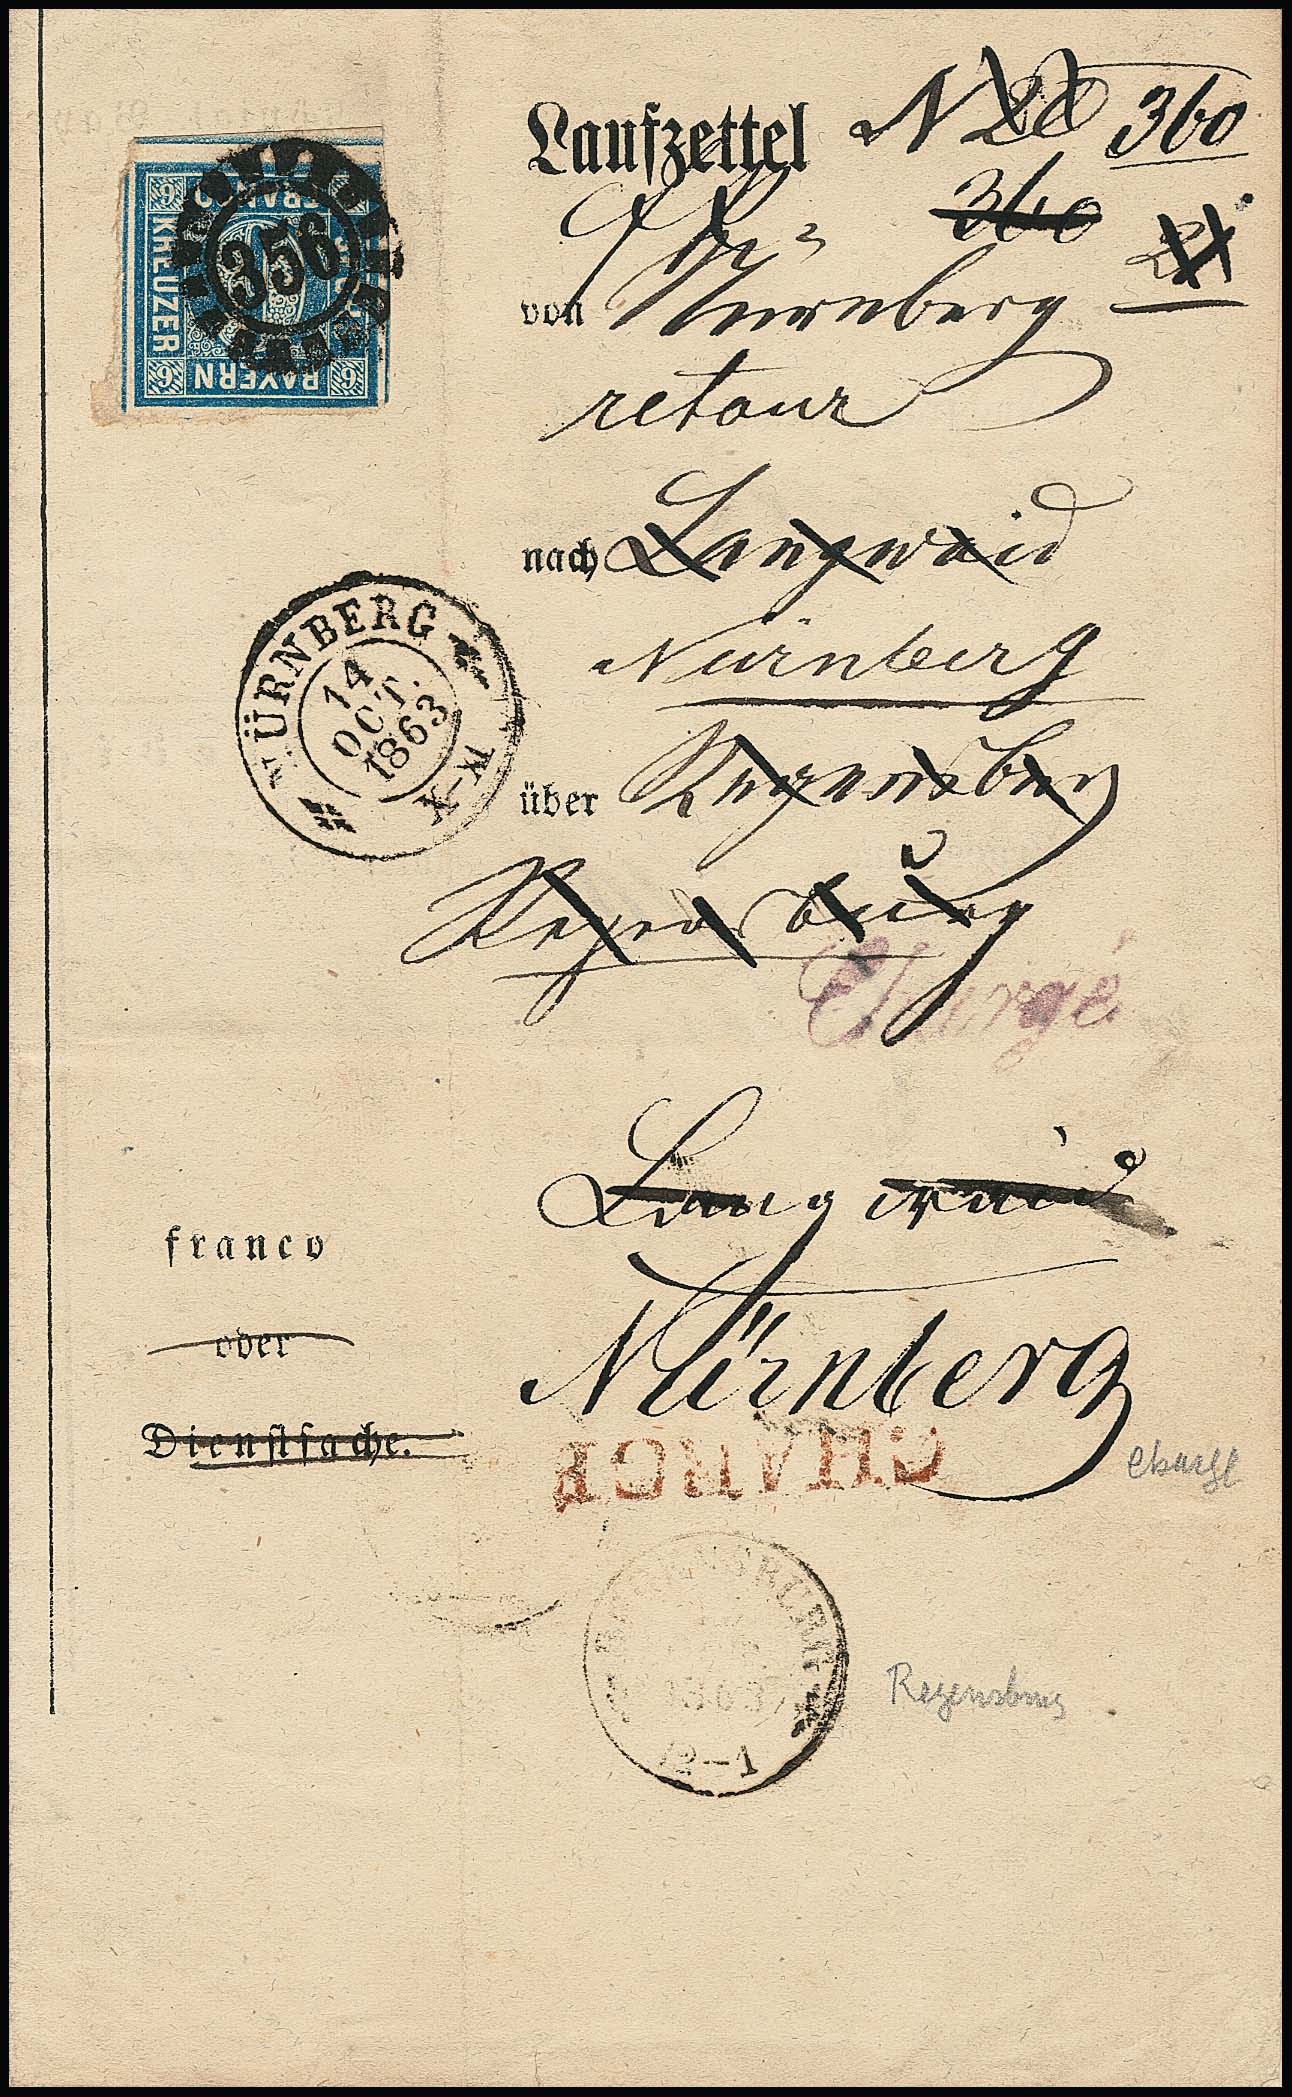 Laufzettel N 360
360
von Nürnberg
retour
nach Langwaid
Nürnberg
über Regensburg
Regensburg
Chargé
Langwaid
Nürnberg
franco
oder
Dienstsache.
CHARGÉ
chargé
Regensburg
NÜRNBERG
14
OCT.
1863
REGENSBURG
1863
12-1
356
FRANCO
SECHS
KREUZER
BAYERN
6
6
6